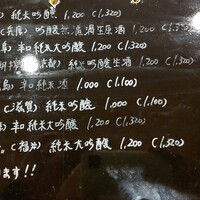 純米吟醸 1,200 (1,320)
(兵庫) 吟醸無濾過生原酒 1,200 (1,320)
島) 和 純米大吟醸 1,200 (1,320)
純米吟醸 1,200 (1,320)
島) 和 純米酒 1,000 (1,100)
(滋賀) 純米吟醸 1,000 (1,100)
島) 和 純米大吟醸 1,200 (1,320)
(福井) 純米大吟醸 1,200 (1,320)
ます!!